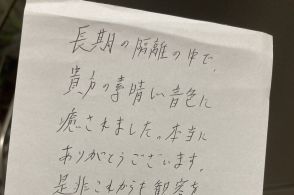 長期の隔離の中で、
貴方の素晴しい音色に
癒されました。本当に
ありがとうございます。
是非これからも観客を